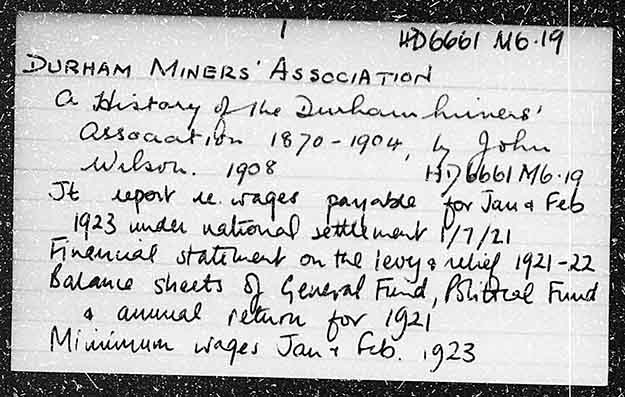 1
HD6661 M6.19
DURHAM MINERS' ASSOCIATION
A History of the Durham Miners'
Association 1870-1904, by John
Wilson. 1908 HD6661 M6.19
Jt report re. wages payable for Jan & Feb
1923 under national settlement 1/7/21
Financial statement on the levy & relief 1921-22
Balance sheets of General Fund, Political Fund
& annual return for 1921
Minimum wages Jan & Feb. 1923